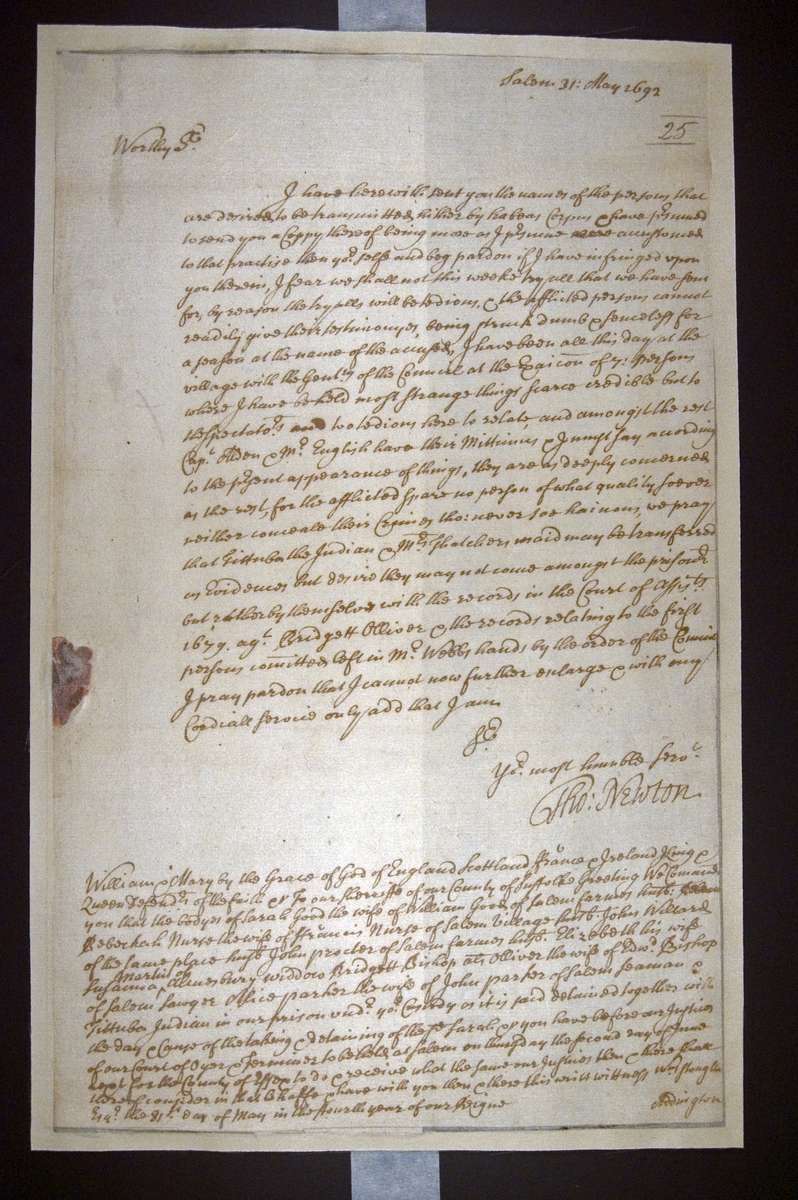 Salem 31: May 1692
25
Worthy Sr.
I have herewith sent you the names of the persons that
are desired to be transmitted hither by habeas Corpus & have p'sumed
to send you a Coppy thereof being more as I p'sume accustomed
to that practise then yor. selfe and beg pardon if I have infringed upon
you therein, I fear we shall not this weeke try all that we have sent
for, by reason the tryalls will be tedious, & the afflicted persons cannot
readily give their testimonyes, being struck dumb & senceless for
a season at the name of the accused, I have been all this day at the
village with the Gentl. of the Council at the Exaicon of 7: persons
where I have beheld most strange things scarce credible but to
the spectators and too tedious here to relate, and amongst the rest
Capt. Alden & Mr. English have their Mittimus & I must say according
to the p'sent appearance of things, they are as deeply concerned
as the rest, for the afflicted spare no person of what quality soever
neither conceale their Crimes tho: never soe hainous, we pray
that Tittuba the Indian & Mrs. Thatchers maid may be transferred
as Evidences but desire they may not come amongst the prisoners
but rather by themselves with the records in the Court of Assists.
1679. agt. Bridgett Olliver & the records relating to the first
persons comitted left in Mr. Webbs hands by the order of the Council
I pray pardon that I cannot now further enlarge & with my
Cordiall service only add that I am
Sr.
Yor. most humble Servt.
Tho: Newton
William & Mary by the Grace of God of England Scottland France & Ireland King &
Queen Defendrs of the faith &c To our sherriffe of our County of Suffolke Greeting We Comand
you that the bodyes of Sarah Good the wife of William Good of Salem farmes husb.
Rebeckah Nurse the wife of Francis Nurse of Salem Village husb. John Willard
of the same place husb. John Procter of Salem farmes husb. Elizebeth his wife
Susanna Martin of Almesbury widdow Bridgett Bishop als Olliver the wife of Edwd. Bishop
of Salem Sawyer Allice Parker the wife of John Parker of Salem seaman &
Tittuba Indian in our prison undr. yor. Custody as it is said detained together with
the day & Cause of the takeing & detaining of the sd. Sarah &c you have before our Justices
of our Court of Oyer & Terminer to be held at Salem on thursday the second day of June
next for the County of Essex to do & receive what the same our Justices then & there shall
thereof consider in that behalfe & have with you then & there this writ wittness Wm Stoughton
Esqr. the 31st. day of May in the fourth year of our Reigne
Addington